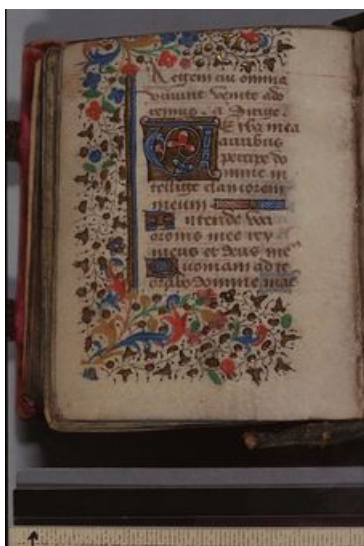 Regem cui omnia
viuunt venite ado
remus. a Dirige.
Verba mea
auribus
percipe do
mine in
tellige clamorem
meum
Intende voci
oronis mee rex
meus et deus me⁹
Quoniam ad te
orabo domine mae